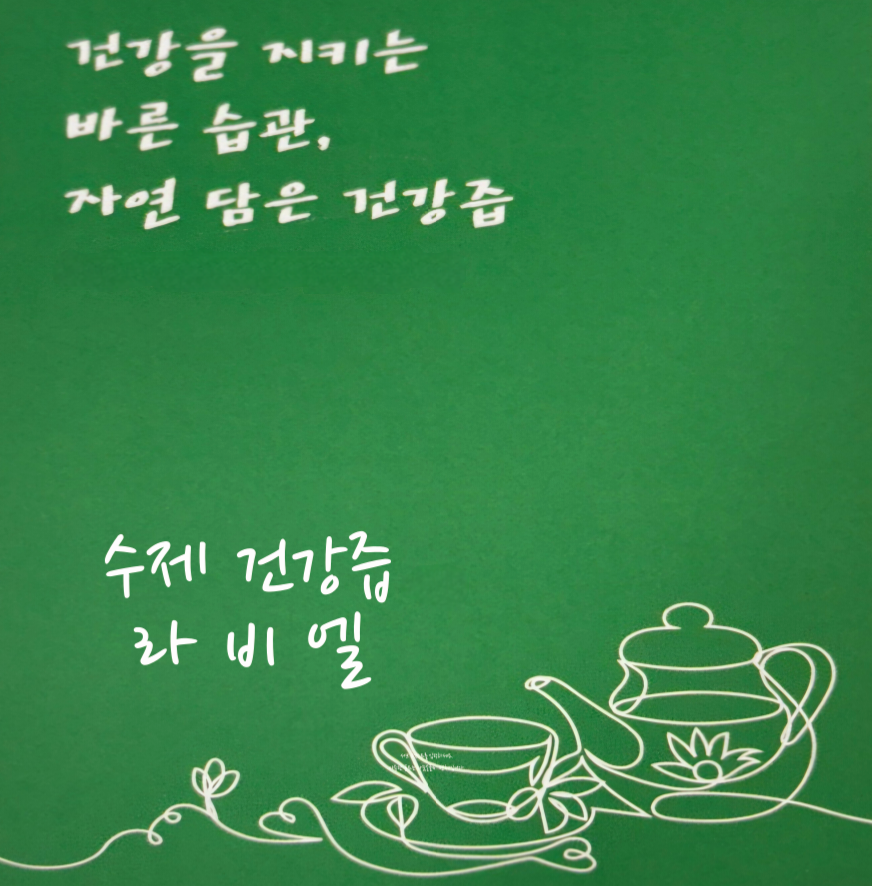 건강을 지키는
바른 습관,
자연 담은 건강즙
수제 건강즙
라 비 엘